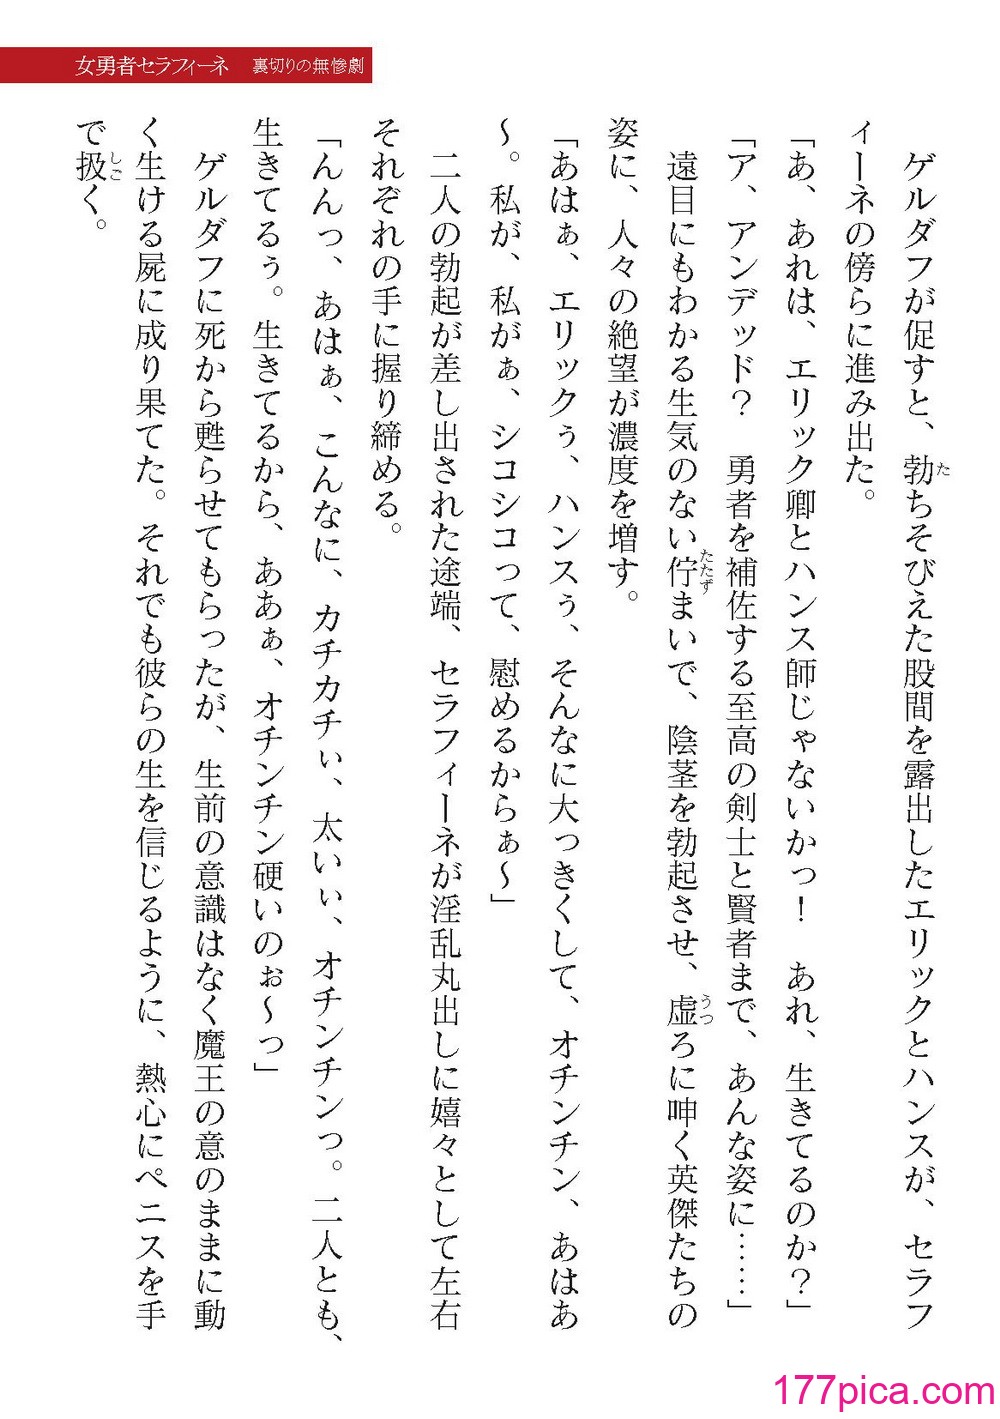 女勇者セラフィーネ　裏切りの無惨劇
　ゲルダフが促すと、勃ちそびえた股間を露出したエリックとハンスが、セラフ
ィーネの傍らに進み出た。
「あ、あれは、エリック卿とハンス師じゃないかっ！　あれ、生きてるのか？」
「ア、アンデッド？　勇者を補佐する至高の剣士と賢者まで、あんな姿に……」
　遠目にもわかる生気のない佇まいで、陰茎を勃起させ、虚ろに呻く英傑たちの
姿に、人々の絶望が濃度を増す。
「あはぁ、エリックぅ、ハンスぅ、そんなに大っきくして、オチンチン、あはあ
〜。私が、私がぁ、シコシコって、慰めるからぁ〜」
　二人の勃起が差し出された途端、セラフィーネが淫乱丸出しに嬉々として左右
それぞれの手に握り締める。
「んんっ、あはぁ、こんなに、カチカチぃ、太いぃ、オチンチンっ。二人とも、
生きてるぅ。生きてるから、ああぁ、オチンチン硬いのぉ〜っ」
　ゲルダフに死から甦らせてもらったが、生前の意識はなく魔王の意のままに動
く生ける屍に成り果てた。それでも彼らの生を信じるように、熱心にペニスを手
で扱く。
た
たたず
うつ
しご
177pica.com